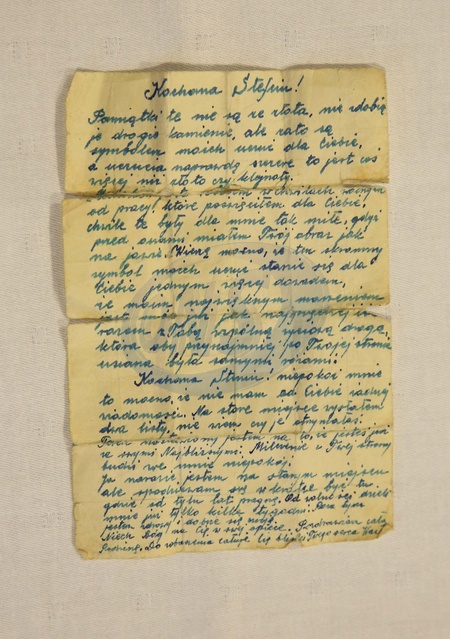 Kochana Stefciu!
Pamiątki te nie są ze złota, nie zdobią
je drogie kamienie, ale zato są
symbolem moich uczuć dla Ciebie,
a uczucia naprawdę szczere to jest coś
więcej niż złoto czy klejnoty.
w chwilach wolnych
od pracy, które poświęciłem dla Ciebie,
chwile te były dla mnie tak miłe, gdyż
przed oczami miałem Twój obraz jak
na jawie. Wierzę mocno, iż ten skromny
symbol moich uczuć stanie się dla
Ciebie jednym więcej dowodem,
że moim najpiękniejszym marzeniem
jest móc iść jak najprędzej
razem z Tobą wspólną życiową drogą,
która oby przynajmniej po Twojej stronie
usiana była samymi różami.
Kochana Stefciu! niepokoi mnie
to mocno, że nie mam od Ciebie żadnej
wiadomości. Na stare miejsce wysłałem
dwa listy, nie wiem czy je otrzymałaś.
Teraz jestem na to, że jesteś już
ze swymi Najbliższymi. Milczenie z Twej strony
budzi we mnie niepokój.
Ja narazie jestem na starym miejscu
ale spodziewam się wkrótce być tu
gdzie od tylu lat pragnę. Od wolności dzieli
mnie już tylko kilka tygodni. Poza tym
jestem zdrowy i dobrze się czuję.
Niech Bóg ma Cię w swej opiece. Pozdrawiam całą
Rodzinę. Do widzenia całuję Cię